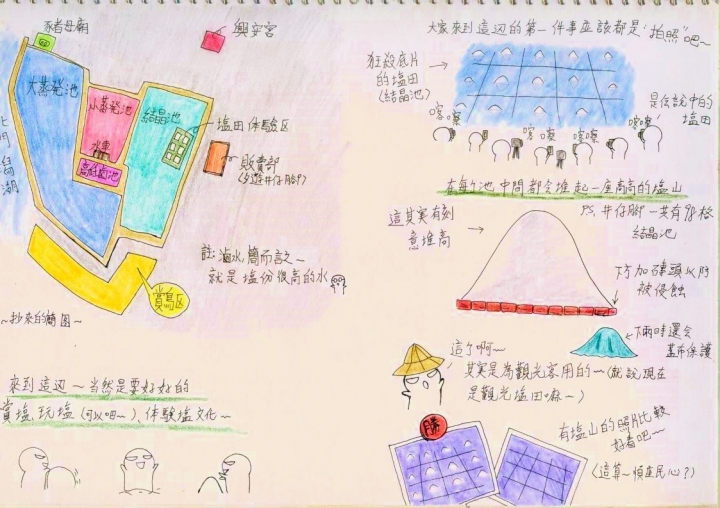 興安宮
大蒸発池
小蒸発池
結晶池
水車
塩田体験区
販賣部
(夕遊井仔腳)
北門
潟湖
註:滷水,簡而言之~
就是塩份很高的水
賞鳥区
~抄來的簡圖~
來到這辺~当然是要好好的
賞塩、玩塩(可以吧~)、体驗塩文化~
大家來到這辺的第一件事应該都是"拍照"吧~
狂殺底片
的塩田
(結晶池)
是傳說中的
塩田
喀嚓
喀嚓
喀嚓
喀嚓
在每个池中間都会堆起一座高高的塩山
PS.井仔腳一共有98格
結晶池
這其实有刻
意堆高
下方加磚頭以防
被侵蝕
下雨時還会
蓋布保護
這了啊~
其実是為觀光客用的~(就說現在
是觀光塩田嘛~)
勝
有塩山的照片比較
好看吧~
(這算~順應民心?)